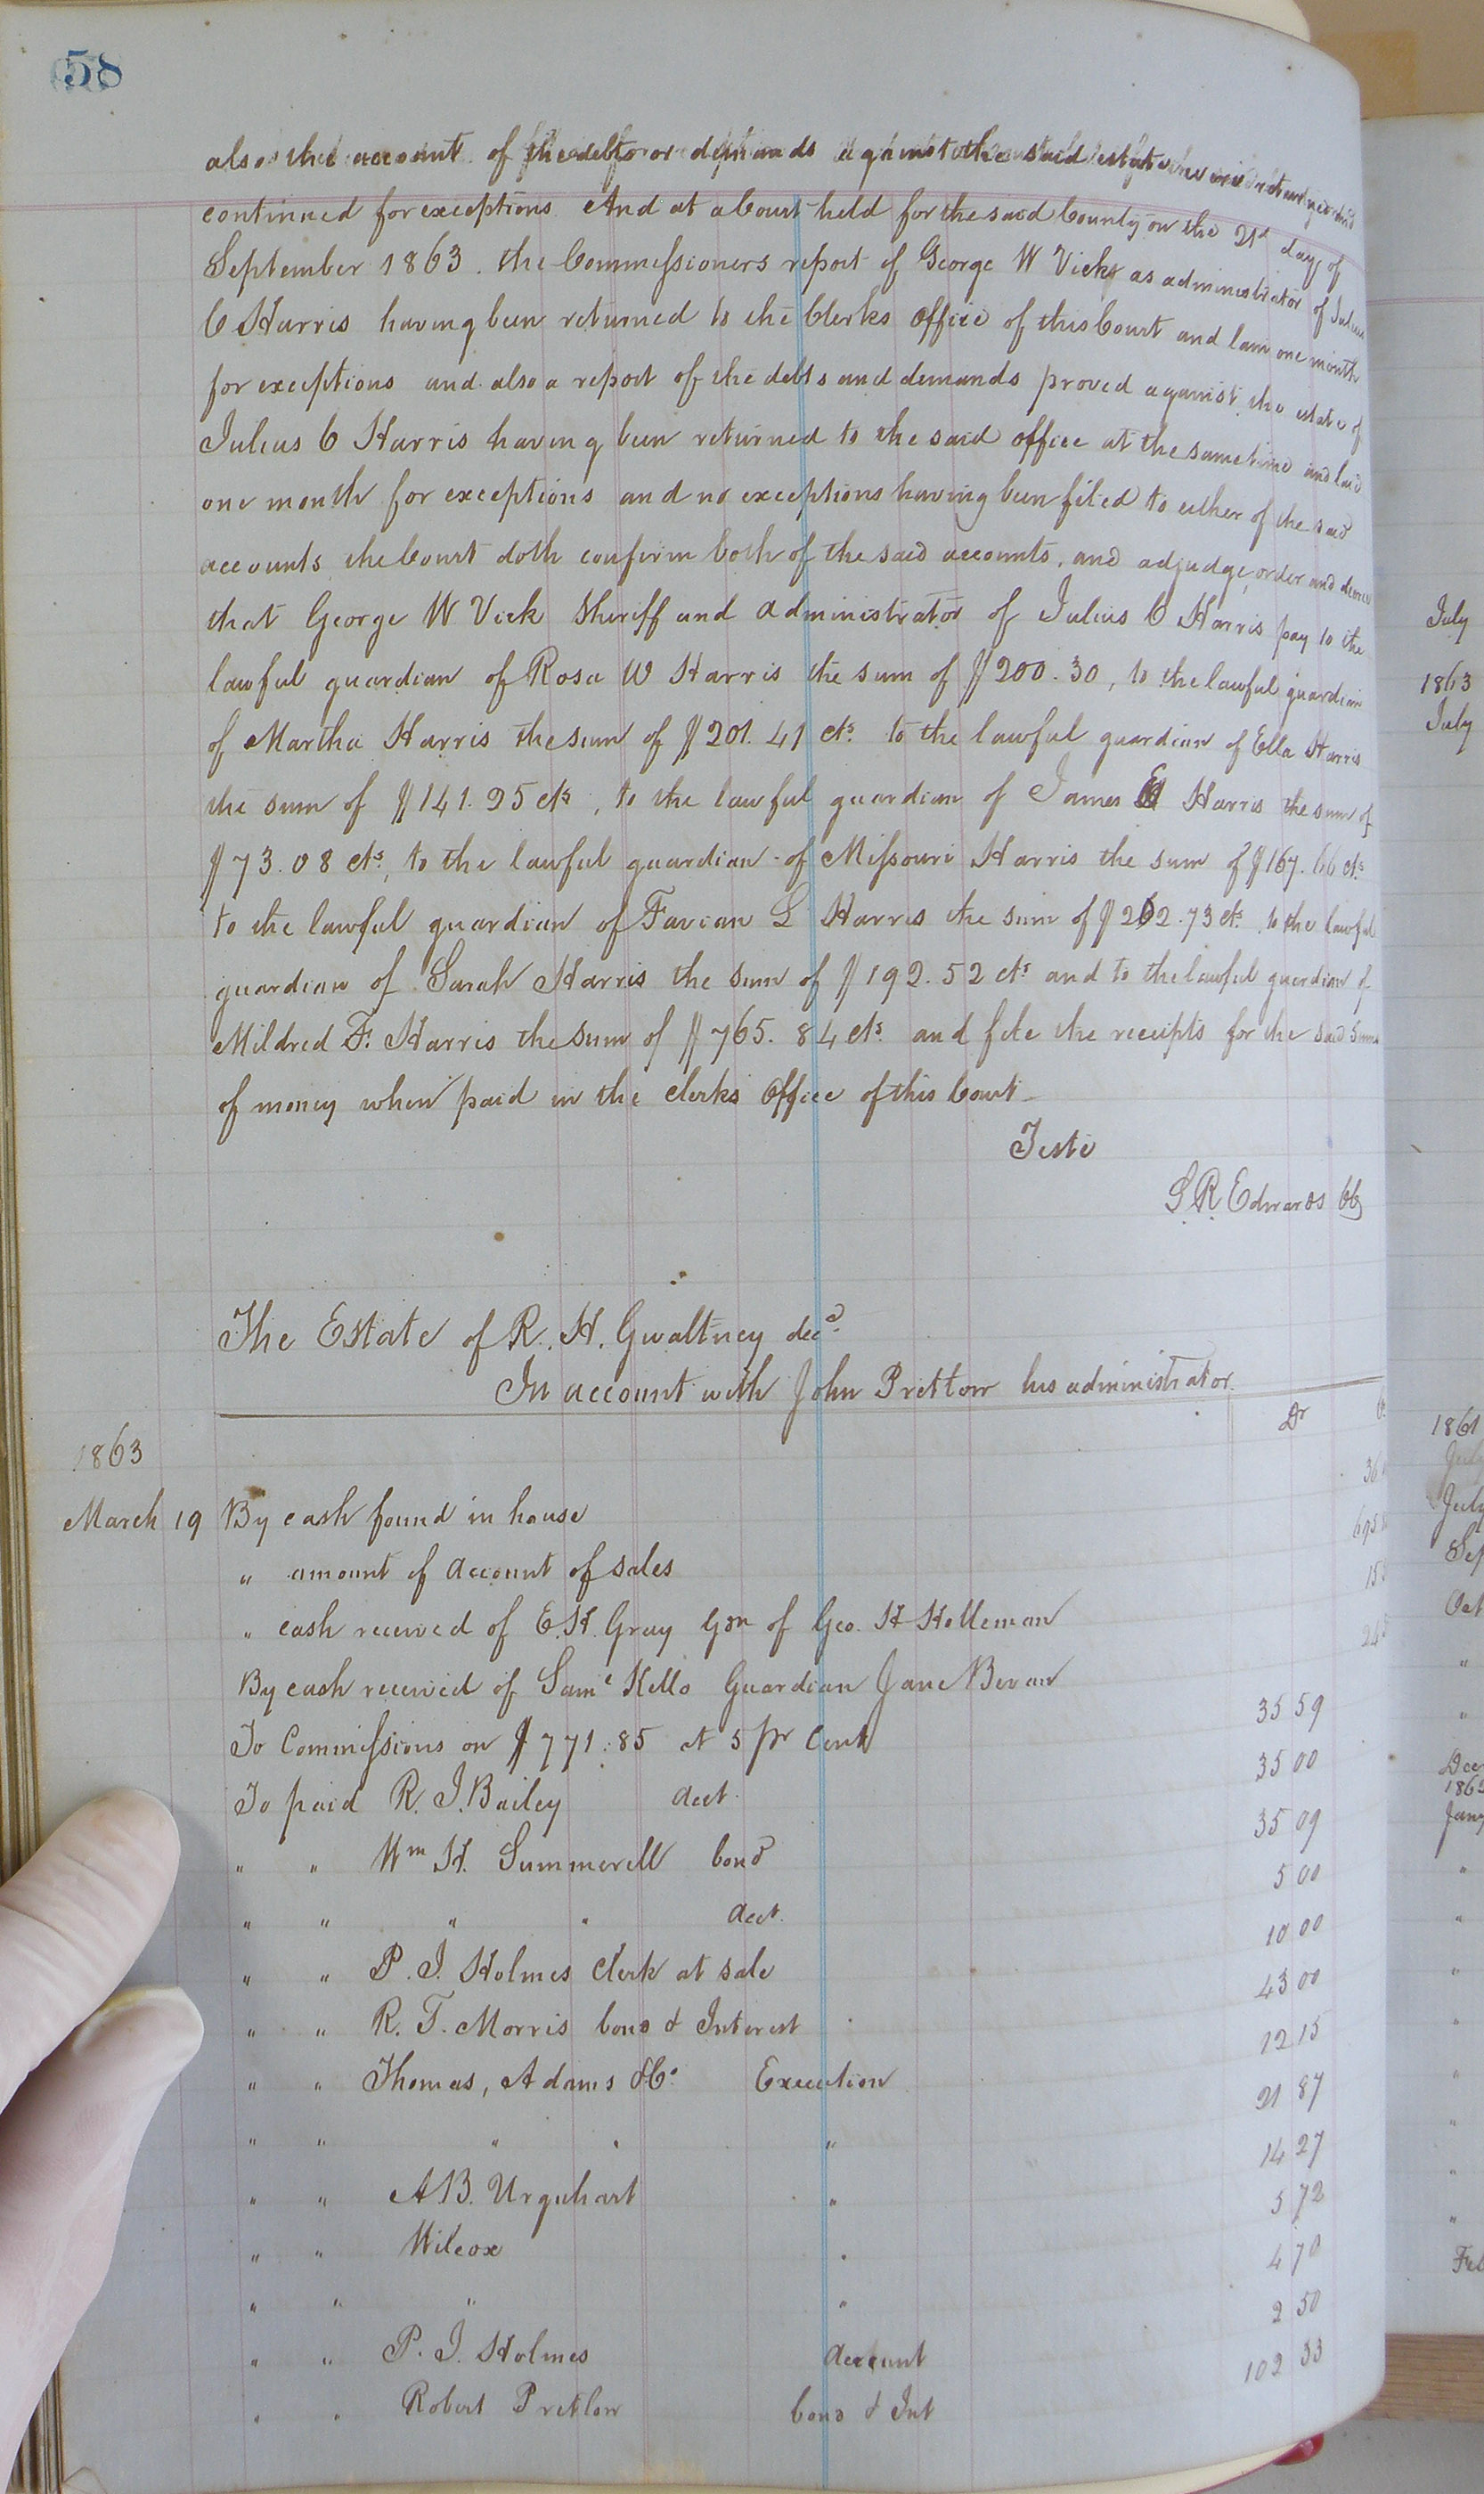 58
also the account of the debts or demands against the said estate
continued for exceptions And at a Court held for the said County on the 21st day of
September 1863. the Commissioners report of George W Vick as administrator of Julius
C Harris having been returned to the Clerks Office of this Court and lain one month
for exceptions and also a report of the debts and demands proved against the estate of
Julius C Harris having been returned to the said office at the same time and laid
one month for exceptions and no exceptions having been filed to either of the said
accounts the Court doth confirm both of the said accounts, and adjudge, order and decree
that George W Vick Sheriff and administrator of Julius C Harris pay to the
lawful guardian of Rosa W Harris the sum of $200.30, to the lawful guardian
of Martha Harris the sum of $201.41 cts. to the lawful guardian of Ella Harris
the sum of $141.25 cts, to the lawful guardian of James Harris the sum of
$73.08 cts, to the lawful guardian of Missouri Harris the sum of $167.66 cts
to the lawful guardian of Favian L Harris the sum of $202.73 cts. to the lawful
guardian of Sarah Harris the sum of $192.52 cts and to the lawful guardian of
Mildred F. Harris the sum of $765.84 cts. and file the receipts for the said sums
of money when paid in the clerks Office of this Court
Teste
L. R. Edwards CC
The Estate of R. H. Gwaltney decd.
In account with John Pretlow his administrator
Dr
1863
March 19 By cash found in house
" amount of account of sales
" cash received of E. H. Gray Gdn of Geo. H Holleman
By cash received of Saml Kello Guardian Jane Bevan
To Commissions on $771.85 at 5 pr Cent 35 59
To paid R. J. Bailey acct. 35 00
" " Wm H. Summerell bond 35 09
" " " " acct. 5 00
" " P. J. Holmes Clerk at sale 10 00
" " R. T. Morris bond & Interest 43 00
" " Thomas, Adams & Co. Execution 12 15
" " " " " 21 87
" " A B. Urquhart " 14 27
" " Wilcox " 5 72
" " " " 4 70
" " P. J. Holmes account 2 50
" " Robert Pretlow bond & Int 102 33
July
1863
July
1861
July
Sep
Oct
"
"
Dec
Jany
"
"
"
"
"
"
"
"